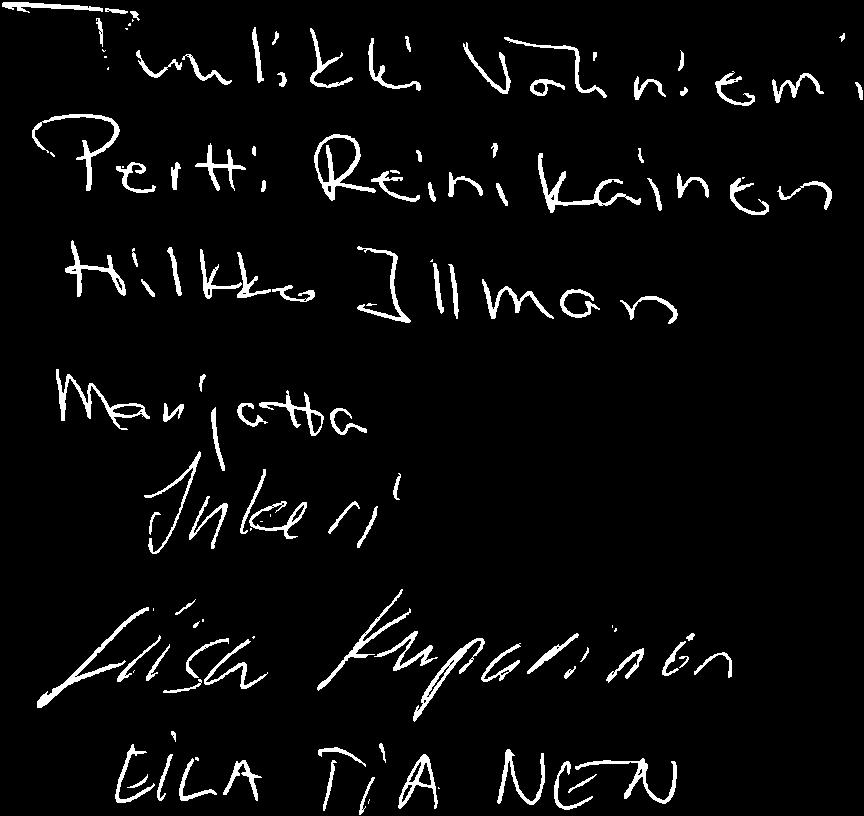 Tuulikki Valiniemi
Pertti Reinikainen
Hilkka Illman
Marjatta
Inkeri
Liisa Kuparinen
EILA TiA NEN